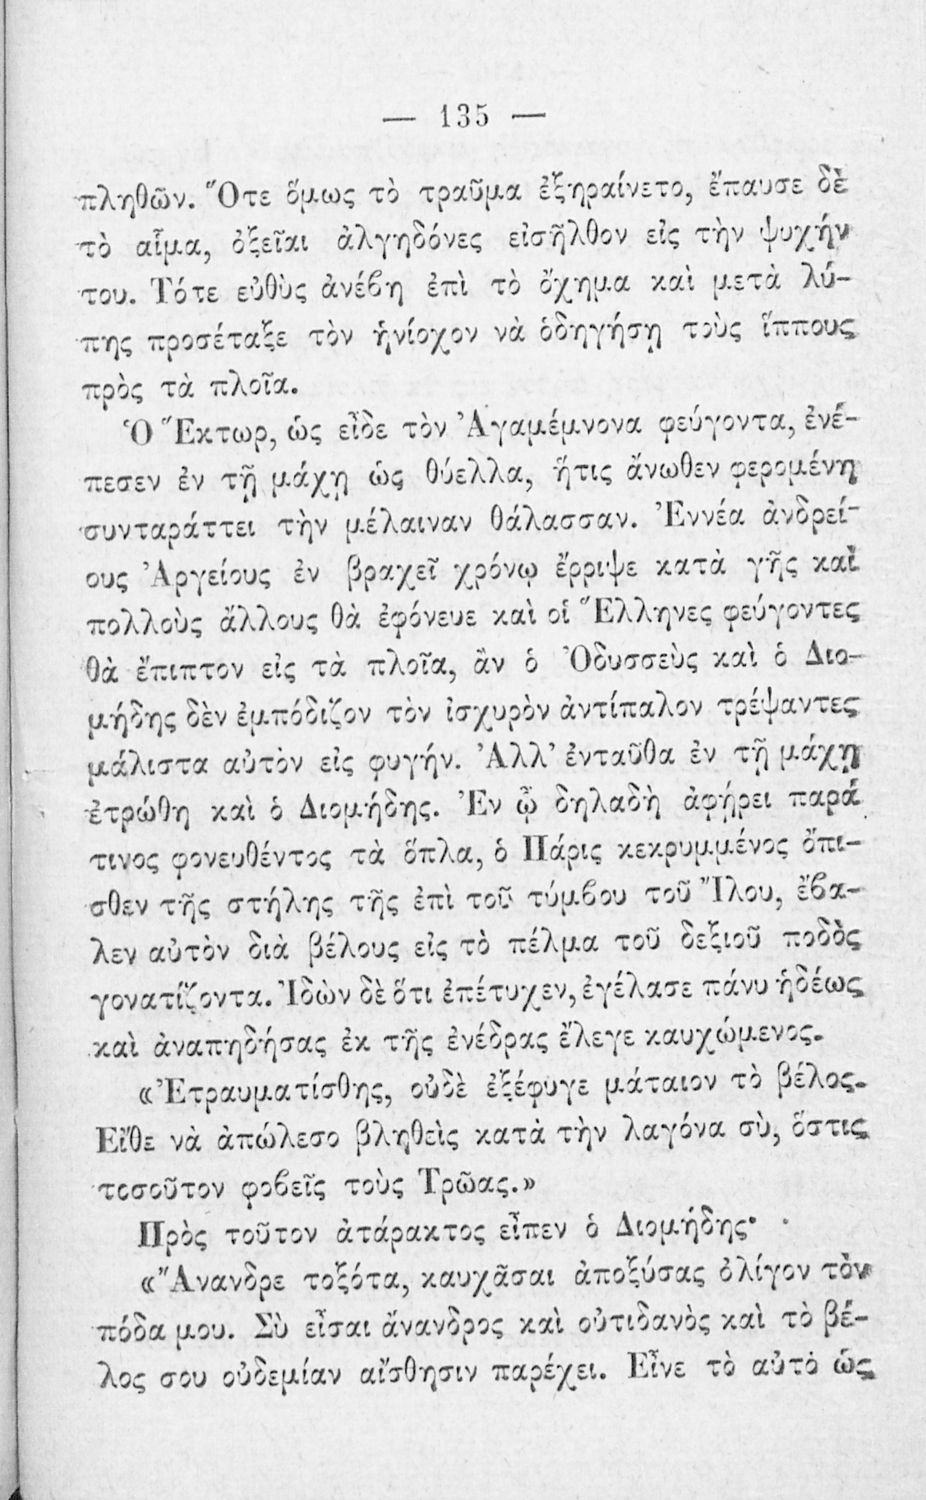 — 135 —
πληθῶν. Ὅτε ὅμως τὸ τραῦμα ἐξηραίνετο, ἔπαυσε δὲ
τὸ αἷμα, ὀξεῖαι ἀλγηδόνες εἰσῆλθον εἰς τὴν ψυχήν
του. Τότε εὐθὺς ἀνέβη ἐπὶ τὸ ὄχημα καὶ μετὰ λύ-
πης προσέταξε τὸν ἡνίοχον νὰ ὁδηγήσῃ τοὺς ἵππους
πρὸς τὰ πλοῖα.
Ὁ Ἕκτωρ, ὡς εἶδε τὸν Ἀγαμέμνονα φεύγοντα, ἐνέ-
πεσεν ἐν τῇ μάχῃ ὡς θύελλα, ἥτις ἄνωθεν φερομένη
συνταράττει τὴν μέλαιναν θάλασσαν. Ἐννέα ἀνδρεί-
ους Ἀργείους ἐν βραχεῖ χρόνῳ ἔρριψε κατὰ γῆς καὶ
πολλοὺς ἄλλους θὰ ἐφόνευε καὶ οἱ Ἕλληνες φεύγοντες
θὰ ἔπιπτον εἰς τὰ πλοῖα, ἂν ὁ Ὀδυσσεὺς καὶ ὁ Διο-
μήδης δὲν ἐμπόδιζον τὸν ἰσχυρὸν ἀντίπαλον τρέψαντες
μάλιστα αὐτὸν εἰς φυγήν. Ἀλλ' ἐνταῦθα ἐν τῇ μάχῃ
ἐτρώθη καὶ ὁ Διομήδης. Ἐν ᾧ δηλαδὴ ἀφῄρει παρά
τινος φονευθέντος τὰ ὅπλα, ὁ Πάρις κεκρυμμένος ὄπι-
σθεν τῆς στήλης τῆς ἐπὶ τοῦ τύμβου τοῦ Ἴλου, ἔβα-
λεν αὐτὸν διὰ βέλους εἰς τὸ πέλμα τοῦ δεξιοῦ ποδὸς
γονατίζοντα. Ἰδὼν δὲ ὅτι ἐπέτυχεν, ἐγέλασε πάνυ ἡδέως
καὶ ἀναπηδήσας ἐκ τῆς ἐνέδρας ἔλεγε καυχώμενος.
«Ἐτραυματίσθης, οὐδὲ ἐξέφυγε μάταιον τὸ βέλος.
Εἴθε νὰ ἀπώλεσο βληθεὶς κατὰ τὴν λαγόνα σὺ, ὅστις
τοσοῦτον φοβεῖς τοὺς Τρῶας.»
Πρὸς τοῦτον ἀτάρακτος εἶπεν ὁ Διομήδης·
«Ἄνανδρε τοξότα, καυχᾶσαι ἀποξύσας ὀλίγον τὸν
πόδα μου. Σὺ εἶσαι ἄνανδρος καὶ οὐτιδανὸς καὶ τὸ βέ-
λος σου οὐδεμίαν αἴσθησιν παρέχει. Εἶνε τὸ αὐτὸ ὡς